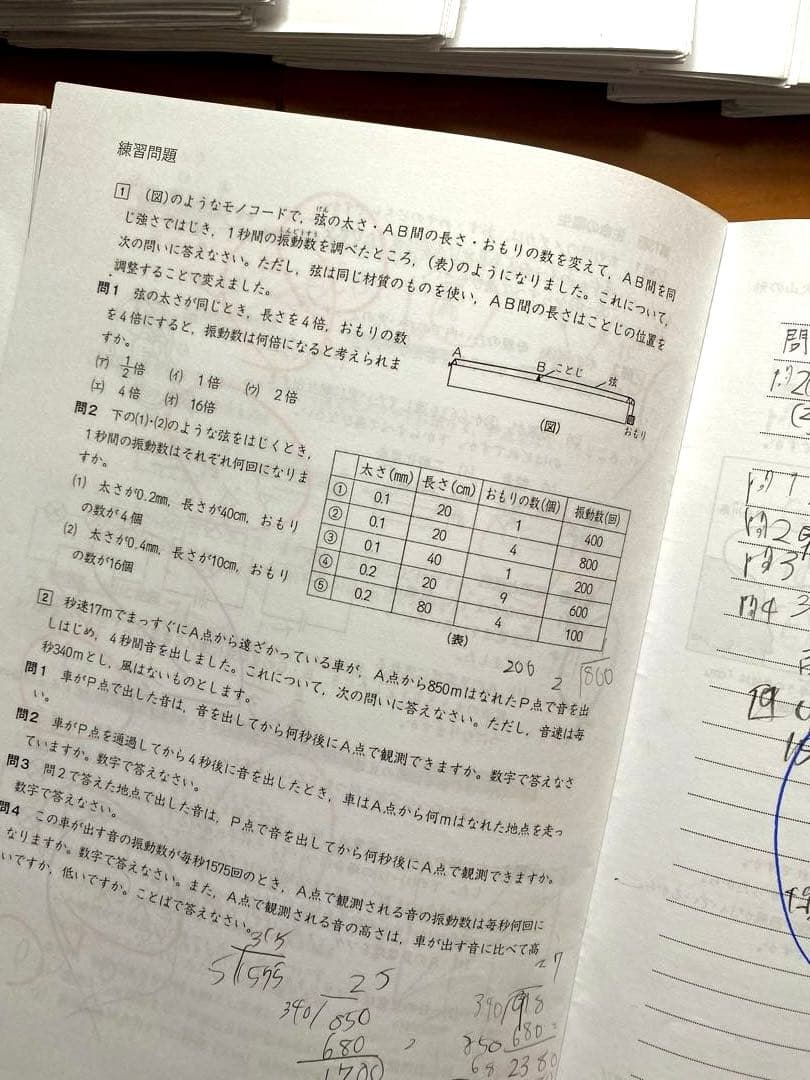 練習問題
1 (図)のようなモノコードで, 弦の太さ・AB間の長さ・おもりの数を変えて, AB間を同
じ強さではじき, 1秒間の振動数を調べたところ, (表)のようになりました。これについて,
次の問いに答えなさい。ただし, 弦は同じ材質のものを使い, AB間の長さはことじの位置を
調整することで変えました。
問1 弦の太さが同じとき, 長さを4倍, おもりの数
を4倍にすると, 振動数は何倍になると考えられま
すか。
(ア) 1/2倍 (イ) 1倍 (ウ) 2倍
(エ) 4倍 (オ) 16倍
A B ことじ 弦
おもり
(図)
問2 下の(1)・(2)のような弦をはじくとき,
1秒間の振動数はそれぞれ何回になりま
すか。
(1) 太さが0.2mm, 長さが40cm, おもり
の数が4個
(2) 太さが0.4mm, 長さが10cm, おもり
の数が16個
太さ(mm) 長さ(cm) おもりの数(個) 振動数(回)
① 0.1 20 1 400
② 0.1 20 4 800
③ 0.1 40 1 200
④ 0.2 20 9 600
⑤ 0.2 80 4 100
(表)
2 秒速17mでまっすぐにA点から遠ざかっている車が, A点から850mはなれたP点で音を出
しはじめ, 4秒間音を出しました。これについて, 次の問いに答えなさい。ただし, 音速は毎
秒340mとし, 風はないものとします。
問1 車がP点で出した音は, 音を出してから何秒後にA点で観測できますか。数字で答えなさ
い。
問2 車がP点を通過してから4秒後に音を出したとき, 車はA点から何mはなれた地点を走っ
ていますか。数字で答えなさい。
問3 問2で答えた地点で出した音は, P点で音を出してから何秒後にA点で観測できますか。
数字で答えなさい。
問4 この車が出す音の振動数が毎秒1575回のとき, A点で観測される音の振動数は毎秒何回に
なりますか。数字で答えなさい。また, A点で観測される音の高さは, 車が出す音に比べて高
いですか, 低いですか。ことばで答えなさい。
200 2 800
315
5 1575
25
340 850
680
1700
27
340 918
850 680
68 2380
問